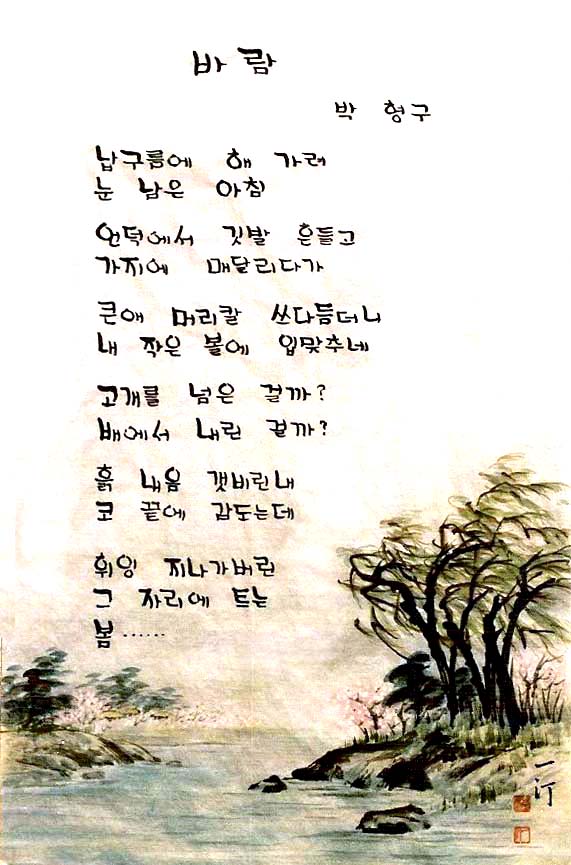 바람
박 형구
납구름에 해 가려
눈 남은 아침
언덕에서 깃발 흔들고
가지에 매달리다가
큰애 머리칼 쓰다듬더니
내 작은 볼에 입맞추네
고개를 넘은 걸까?
배에서 내린 걸까?
흙 내음 갯비린내
코 끝에 감도는데
휘잉 지나가버린
그 자리에 트는
봄 ······
一汀